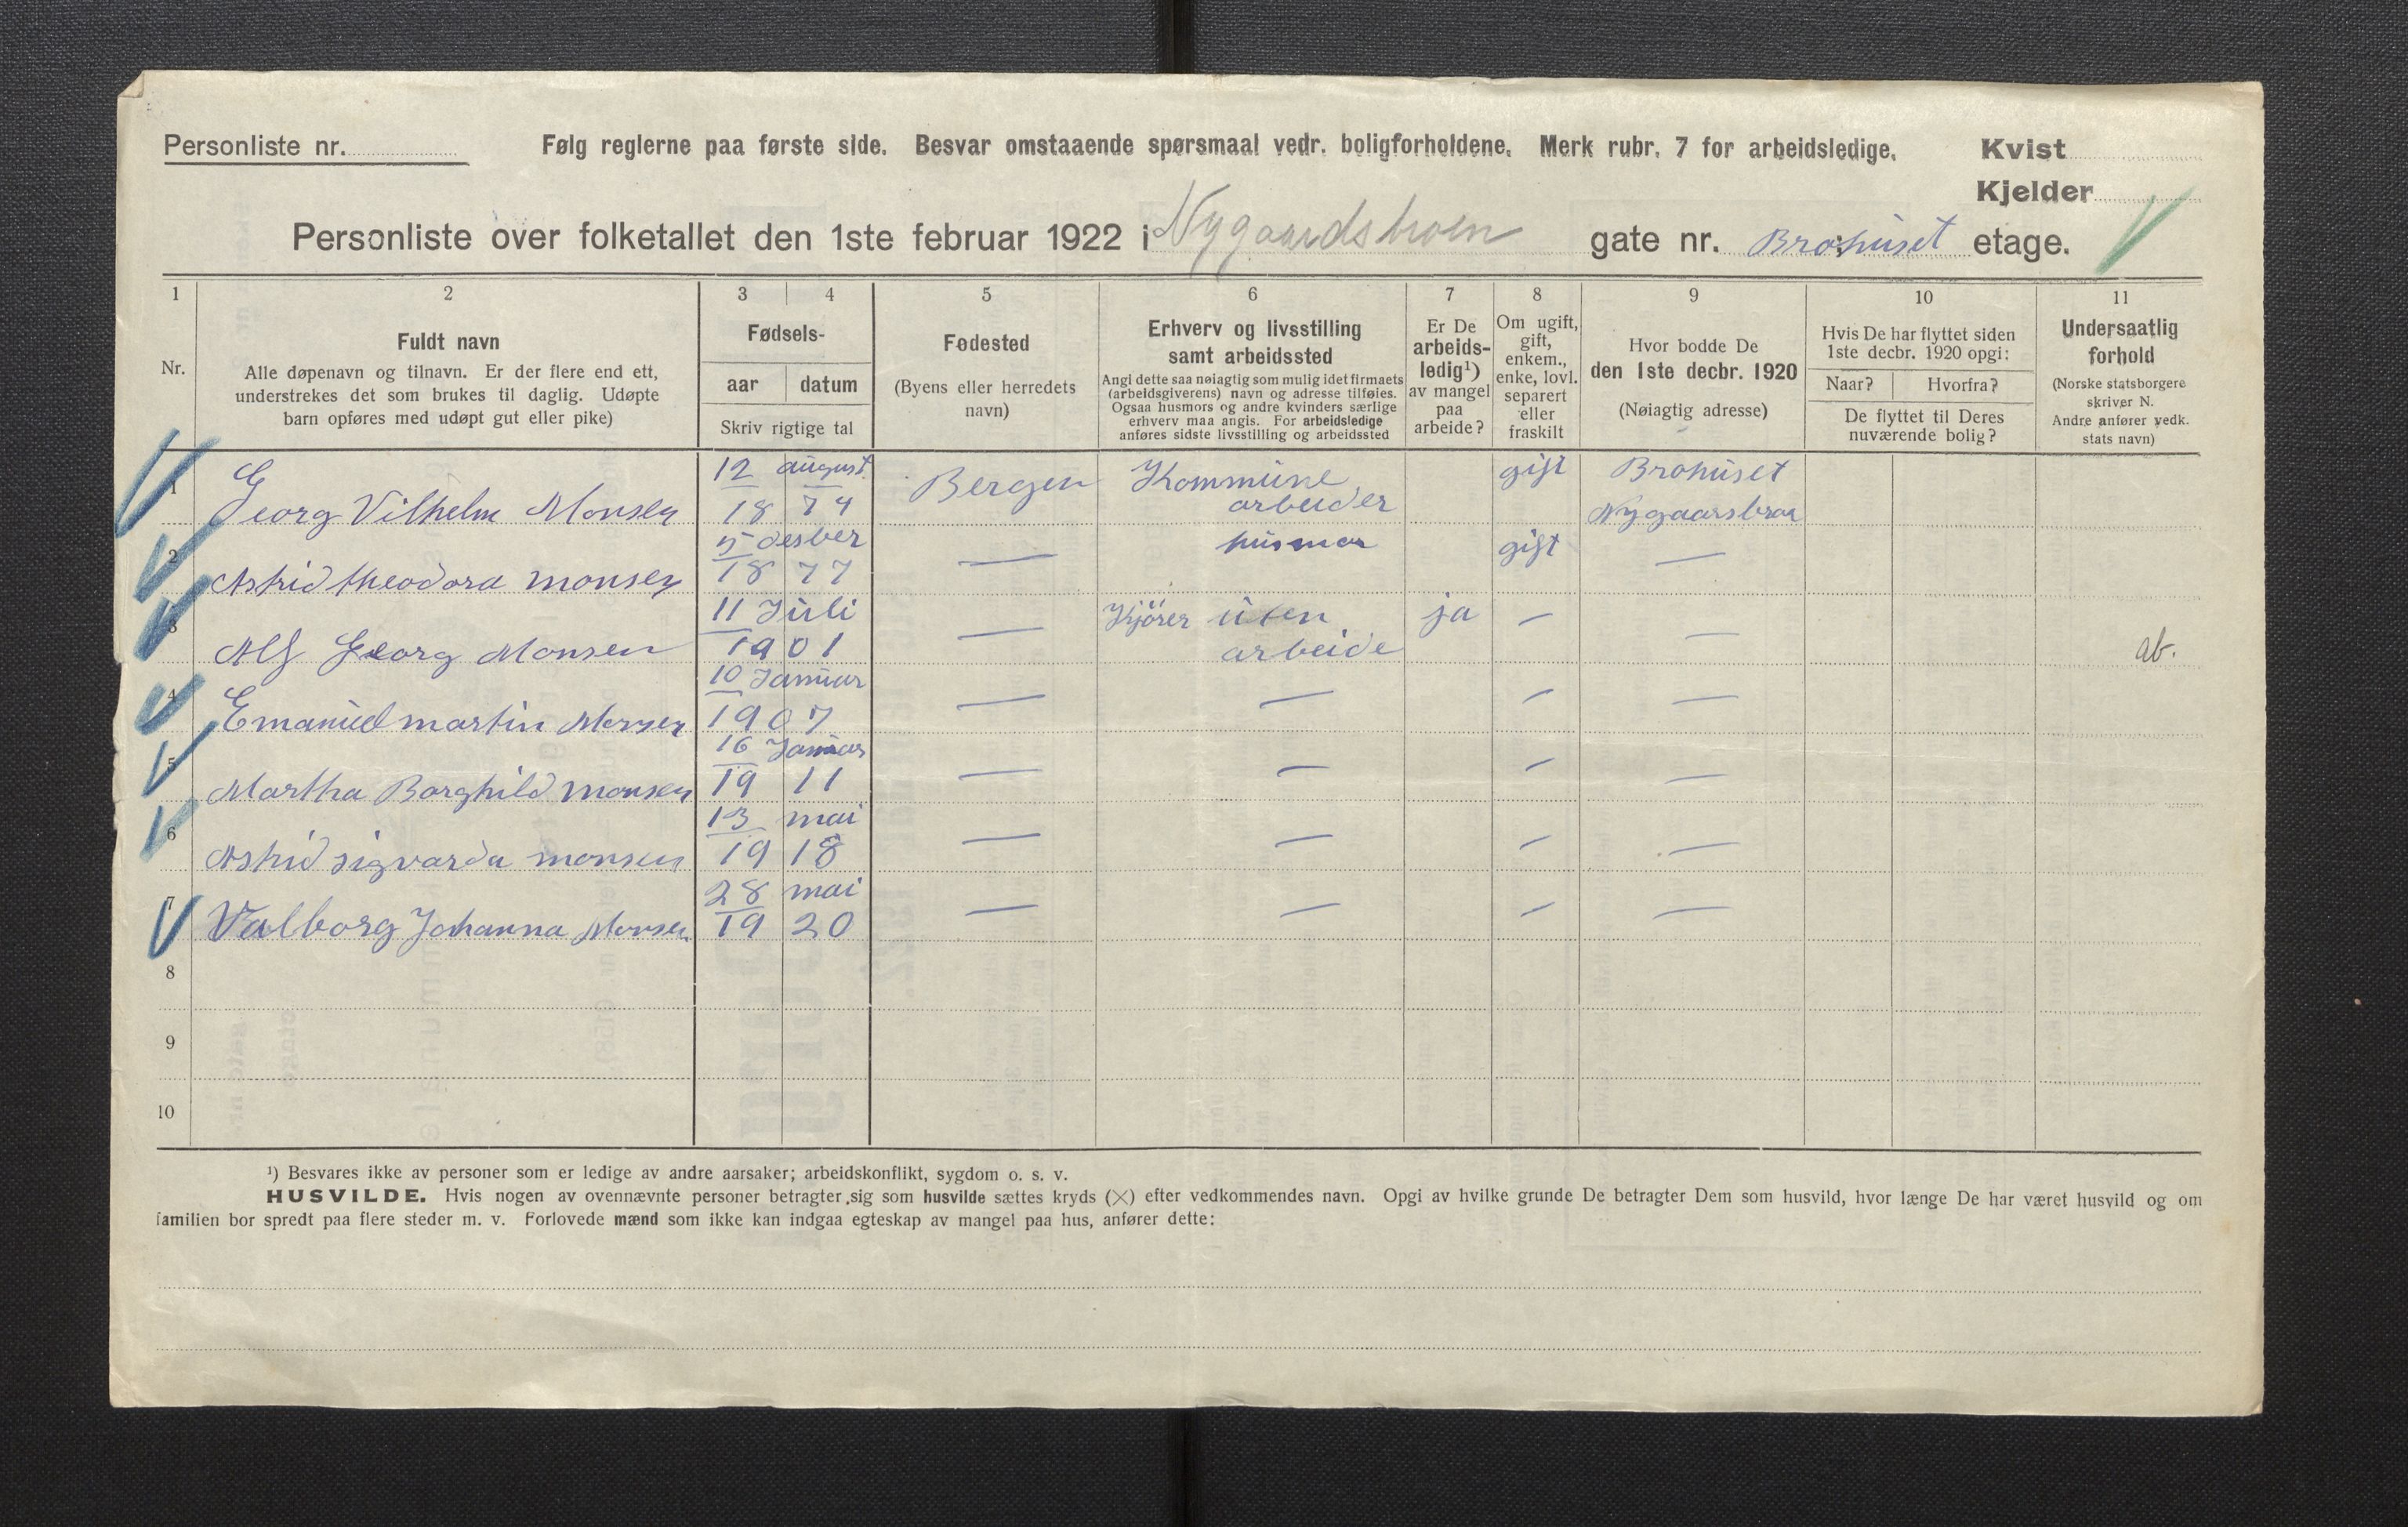 Personliste nr.
Følg reglerne paa første side. Besvar omstaaende spørsmaal vedr. boligforholdene. Merk rubr. 7 for arbeidsledige.
Kvist
Kjelder
Personliste over folketallet den 1ste februar 1922 i Nygaardsbroen gate nr. Brohuset etage.
1 2 3 4 5 6 7 8 9 10 11
Nr.
Fuldt navn
Alle døpenavn og tilnavn. Er der flere end ett,
understrekes det som brukes til daglig. Udøpte
barn opføres med udøpt gut eller pike)
Fødsels-
aar datum
Skriv rigtige tal
Fødested
(Byens eller herredets
navn)
Erhverv og livsstilling
samt arbeidssted
Angi dette saa nøiagtig som mulig idet firmaets
(arbeidsgiverens) navn og adresse tilføies.
Ogsaa husmors og andre kvinders særlige
erhverv maa angis. For arbeidsledige
anføres sidste livsstilling og arbeidssted
Er De
arbeids-
ledig¹)
av mangel
paa
arbeide?
Om ugift,
gift,
enkem.,
enke, lovl.
separert
eller
fraskilt
Hvor bodde De
den 1ste decbr. 1920
(Nøiagtig adresse)
Hvis De har flyttet siden
1ste decbr. 1920 opgi:
Naar? Hvorfra?
De flyttet til Deres
nuværende bolig?
Undersaatlig
forhold
(Norske statsborgere
skriver N.
Andre anfører vedk.
stats navn)
12 august Kommune gift Brohuset
1 Georg Vilhelm Monsen 18 74 Bergen arbeider Nygaarsbroa
5 desber husmor gift —
2 Astrid theodora monsen 18 77 —
11 Juli Kjörer uten ja —
3 Alf Georg Monsen 1901 — arbeide — ab.
10 Januar
4 Emanuel martin Monsen 1907 — — — —
16 Januar
5 Martha Borghild monsen 19 11 — — — —
13 mai
6 Astrid sigvarda monsen 19 18 — — — —
28 mai
7 Valborg Johanna Monsen 19 20 — — — —
8
9
10
¹) Besvares ikke av personer som er ledige av andre aarsaker; arbeidskonflikt, sygdom o. s. v.
HUSVILDE. Hvis nogen av ovennævnte personer betragter sig som husvilde sættes kryds (×) efter vedkommendes navn. Opgi av hvilke grunde De betragter Dem som husvild, hvor længe De har været husvild og om
familien bor spredt paa flere steder m. v. Forlovede mænd som ikke kan indgaa egteskap av mangel paa hus, anfører dette: